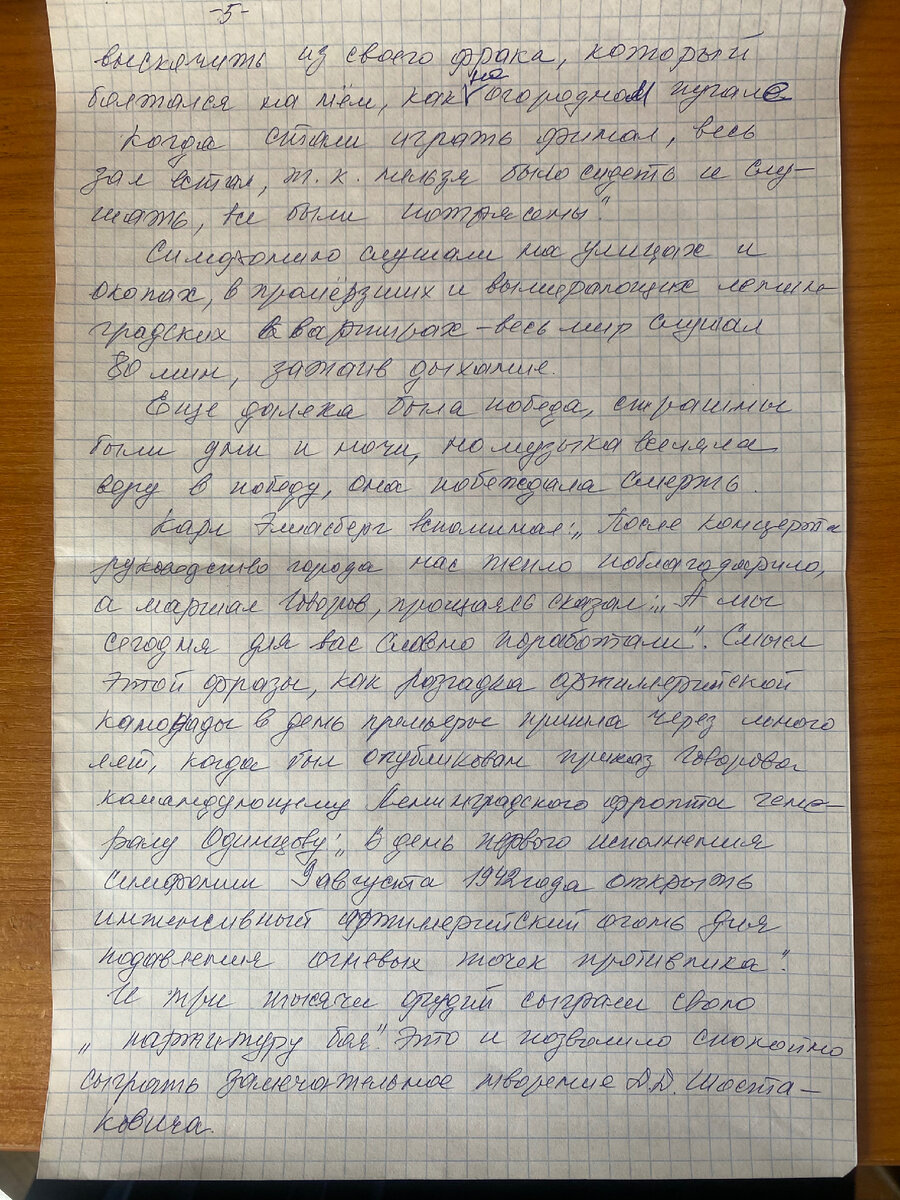 -5-
выскочить из своего фрака, который
болтался на нём, как на огородном пугале
Когда стали играть финал, весь
зал встал, т. к. нельзя было сидеть и слу-
шать, все были потрясены".
Симфонию слушали на улицах и
окопах, в промёрзших и вымирающих ленин-
градских квартирах - весь мир слушал
80 мин, затаив дыхание.
Еще далека была победа, страшны
были дни и ночи, но музыка вселяла
веру в победу, она побеждала смерть.
Карл Элиасберг вспоминал: „После концерта
руководство города нас тепло поблагодарило,
а маршал Говоров, прощаясь сказал: „А мы
сегодня для вас славно поработали". Смысл
этой фразы, как разгадка артиллерийской
канонады в день премьеры пришла через много
лет, когда был опубликован приказ Говорова
командующему Ленинградского фронта гене-
ралу Одинцову: „В день первого исполнения
симфонии 9 августа 1942 года открыть
интенсивный артиллерийский огонь для
подавления огневых точек противника".
И три тысячи орудий сыграли свою
„партитуру боя". Это и позволило спокойно
сыграть замечательное творение Д.Д. Шоста-
ковича.